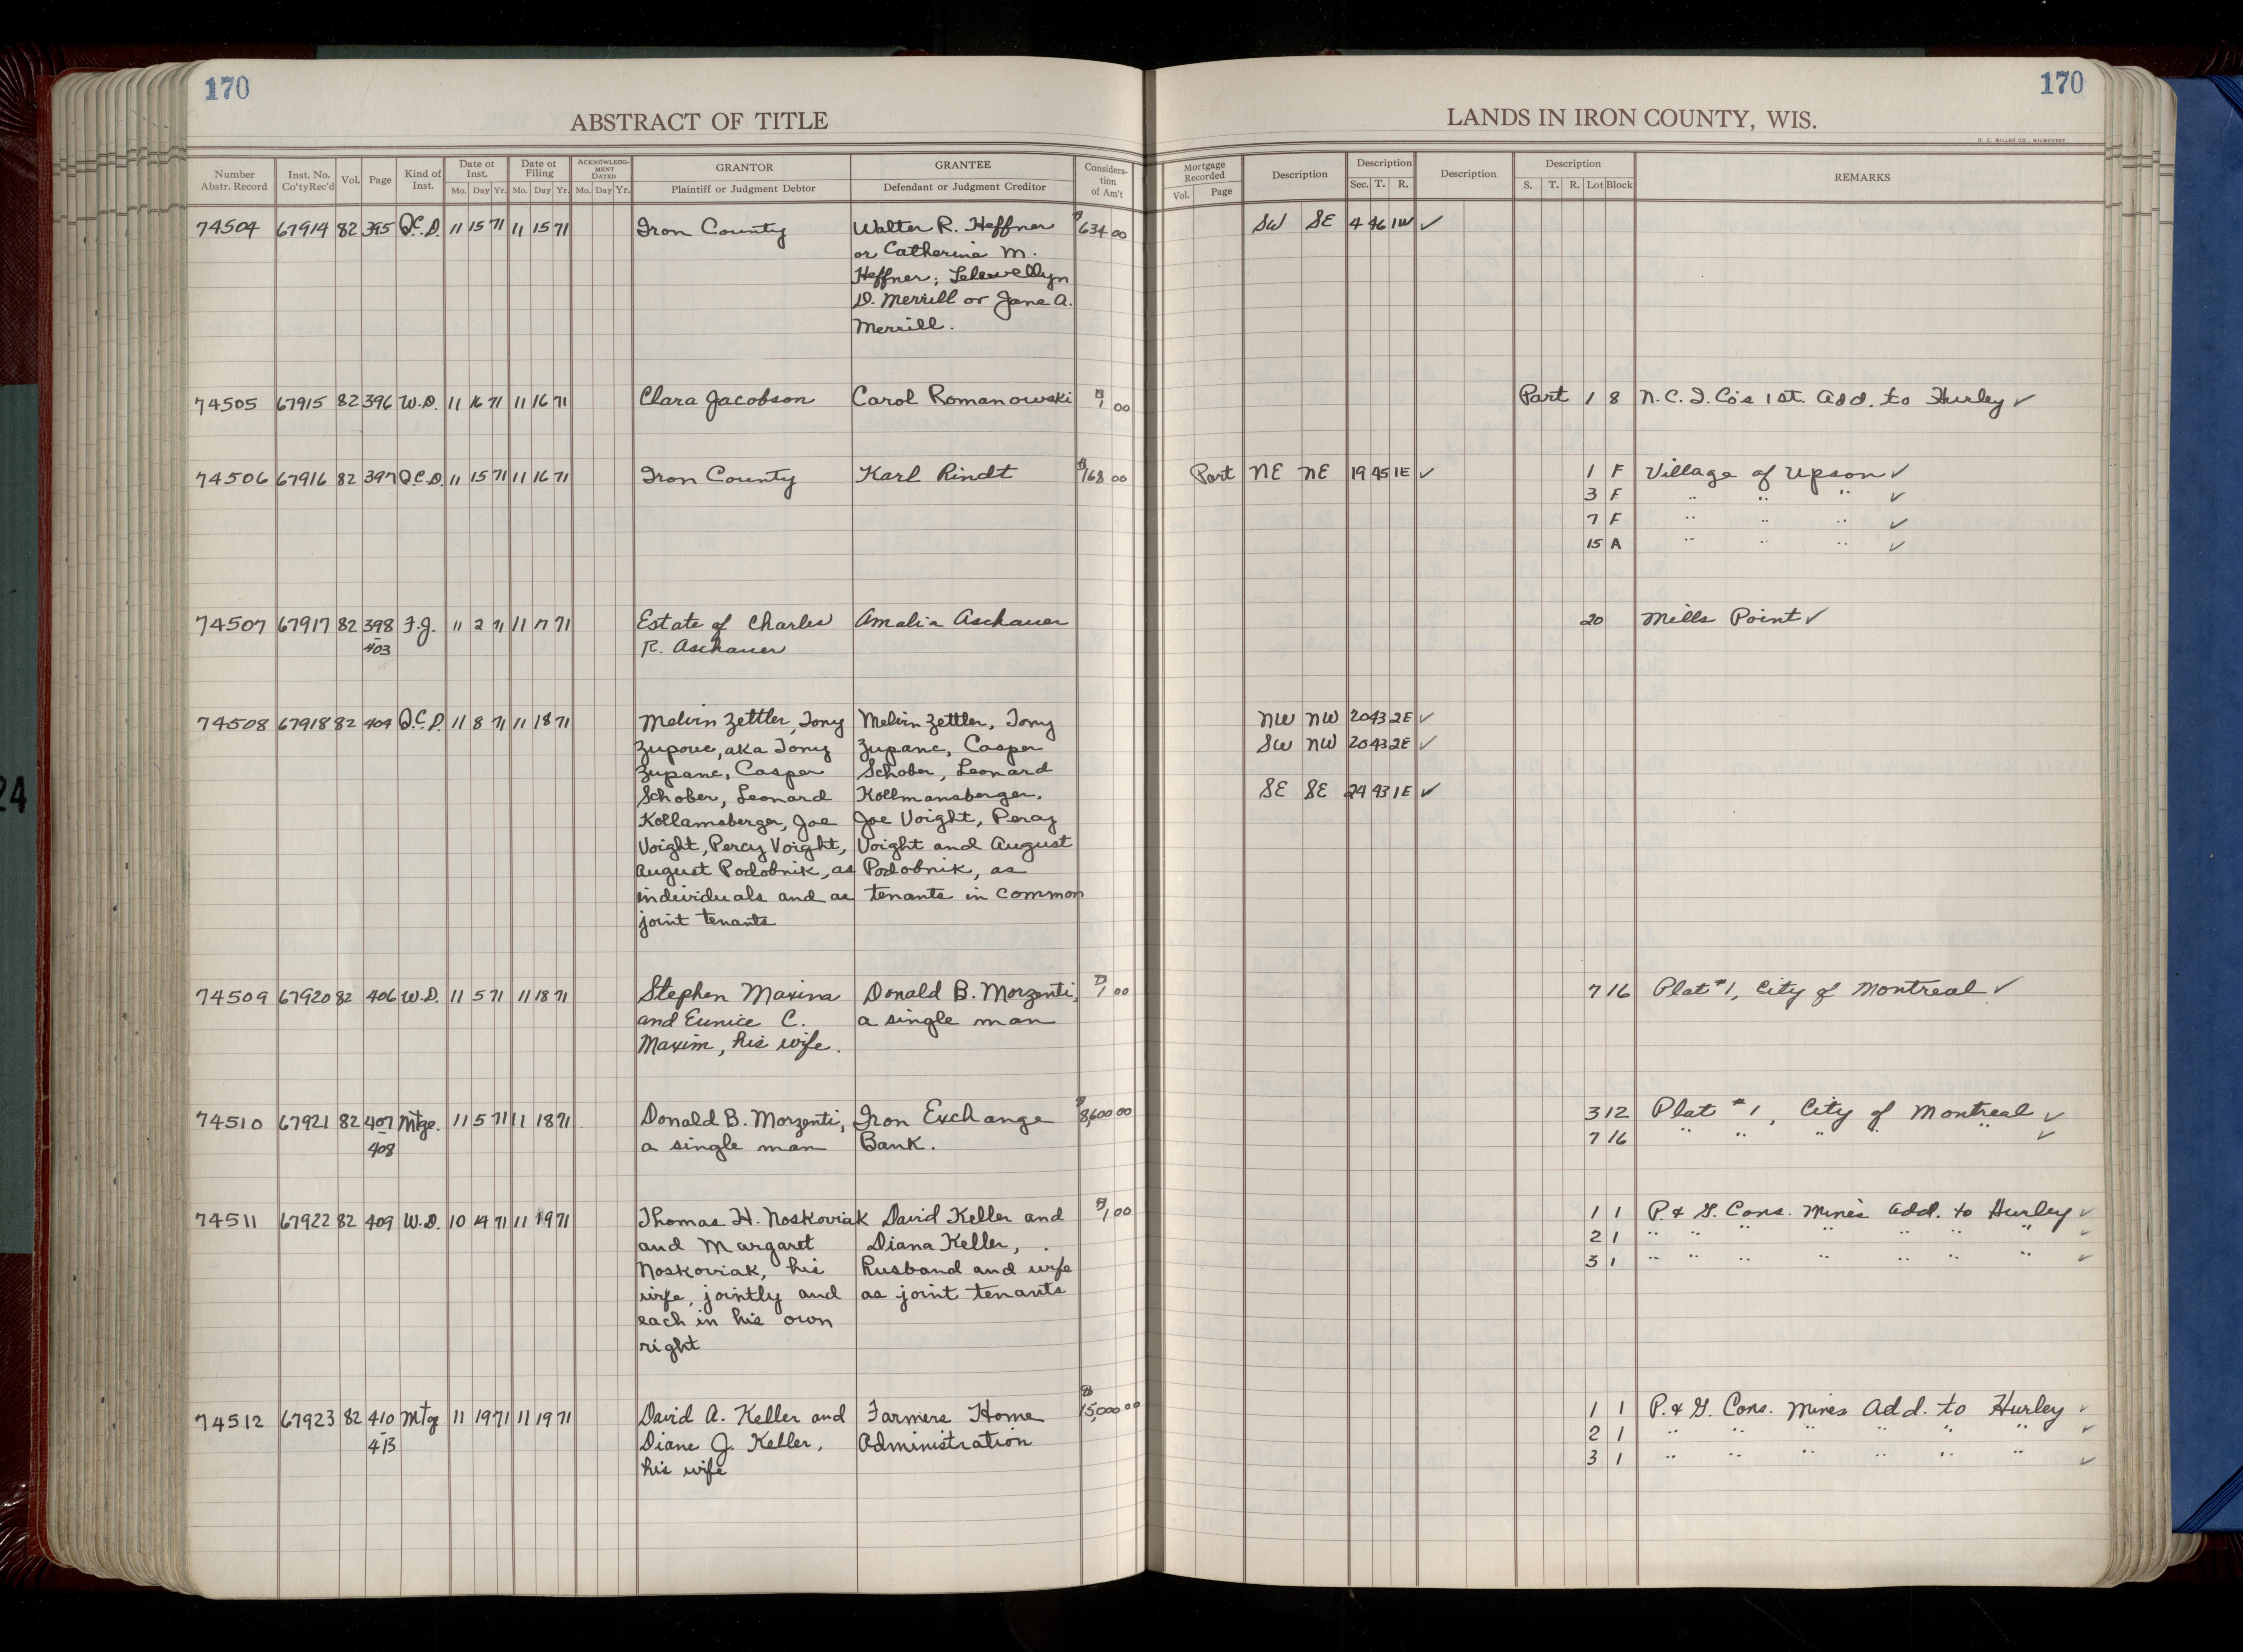 170
170
ABSTRACT OF TITLE
LANDS IN IRON COUNTY, WIS.
H. C. MILLER CO., MILWAUKEE
Number Abstr. Record Inst. No. Co'tyRec'd Vol. Page Kind of Inst. Date of Inst. Mo. Day Yr. Date of Filing Mo. Day Yr. ACKNOWLEDGMENT DATED Mo. Day Yr. GRANTOR Plaintiff or Judgment Debtor GRANTEE Defendant or Judgment Creditor Consideration of Am't Mortgage Recorded Vol. Page Description Description Sec. T. R. Description Description S. T. R. Lot Block REMARKS
74504 67914 82 395 Q.C.D. 11 15 71 11 15 71 Iron County Walter R. Heffner $634 00 SW SE 4 46 1W ✓
or Catherine M.
Heffner; Lelewellyn
D. Merrill or Jane A.
Merrill.
74505 67915 82 396 W.D. 11 16 71 11 16 71 Clara Jacobson Carol Romanowski $1 00 Part 1 8 N.C.I. Co's 1st. Add. to Hurley ✓
74506 67916 82 397 Q.C.D. 11 15 71 11 16 71 Iron County Karl Rindt $168 00 Part NE NE 19 45 1E ✓ 1 F Village of Upson ✓
3 F " " " ✓
7 F " " " ✓
15 A " " " ✓
74507 67917 82 398 F.J. 11 2 71 11 17 71 Estate of Charles Amalia Aschauer 20 Mills Point ✓
-403 R. Aschauer
74508 67918 82 404 Q.C.D. 11 8 71 11 18 71 Melvin Zettler, Tony Melvin Zettler, Tony NW NW 20 43 2E ✓
Zupouc, aka Tony Zupanc, Casper SW NW 20 43 2E ✓
Zupanc, Casper Schober, Leonard
Schober, Leonard Kollmansberger, SE SE 24 43 1E ✓
Kollamsberger, Joe Joe Voight, Percy
Voight, Percy Voight, Voight and August
August Podobnik, as Podobnik, as
individuals and as tenants in common
joint tenants
74509 67920 82 406 W.D. 11 5 71 11 18 71 Stephen Maxina Donald B. Morzenti, $1 00 7 16 Plat #1, City of Montreal ✓
and Eunice C. a single man
Maxim, his wife.
74510 67921 82 407 Mtge. 11 5 71 11 18 71 Donald B. Morzenti, Iron Exchange $8,600 00 3 12 Plat #1, City of Montreal ✓
-408 a single man Bank. 7 16 " " " " " ✓
74511 67922 82 409 W.D. 10 14 71 11 19 71 Thomas H. Noskoviak David Keller and $1 00 1 1 P. & G. Cons. Mines Add. to Hurley ✓
and Margaret Diana Keller, 2 1 " " " " " " " ✓
Noskoviak, his husband and wife 3 1 " " " " " " " ✓
wife, jointly and as joint tenants
each in his own
right
74512 67923 82 410 Mtg 11 19 71 11 19 71 David A. Keller and Farmers Home $15,000 00 1 1 P. & G. Cons. Mines Add. to Hurley ✓
-413 Diane J. Keller, Administration 2 1 " " " " " " ✓
his wife 3 1 " " " " " " ✓
24